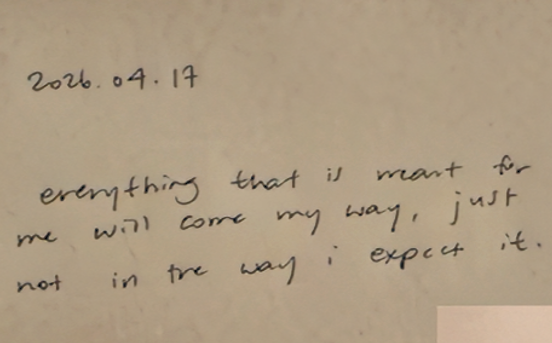 2026.04.17
everything that is meant for
me will come my way, just
not in the way i expect it.